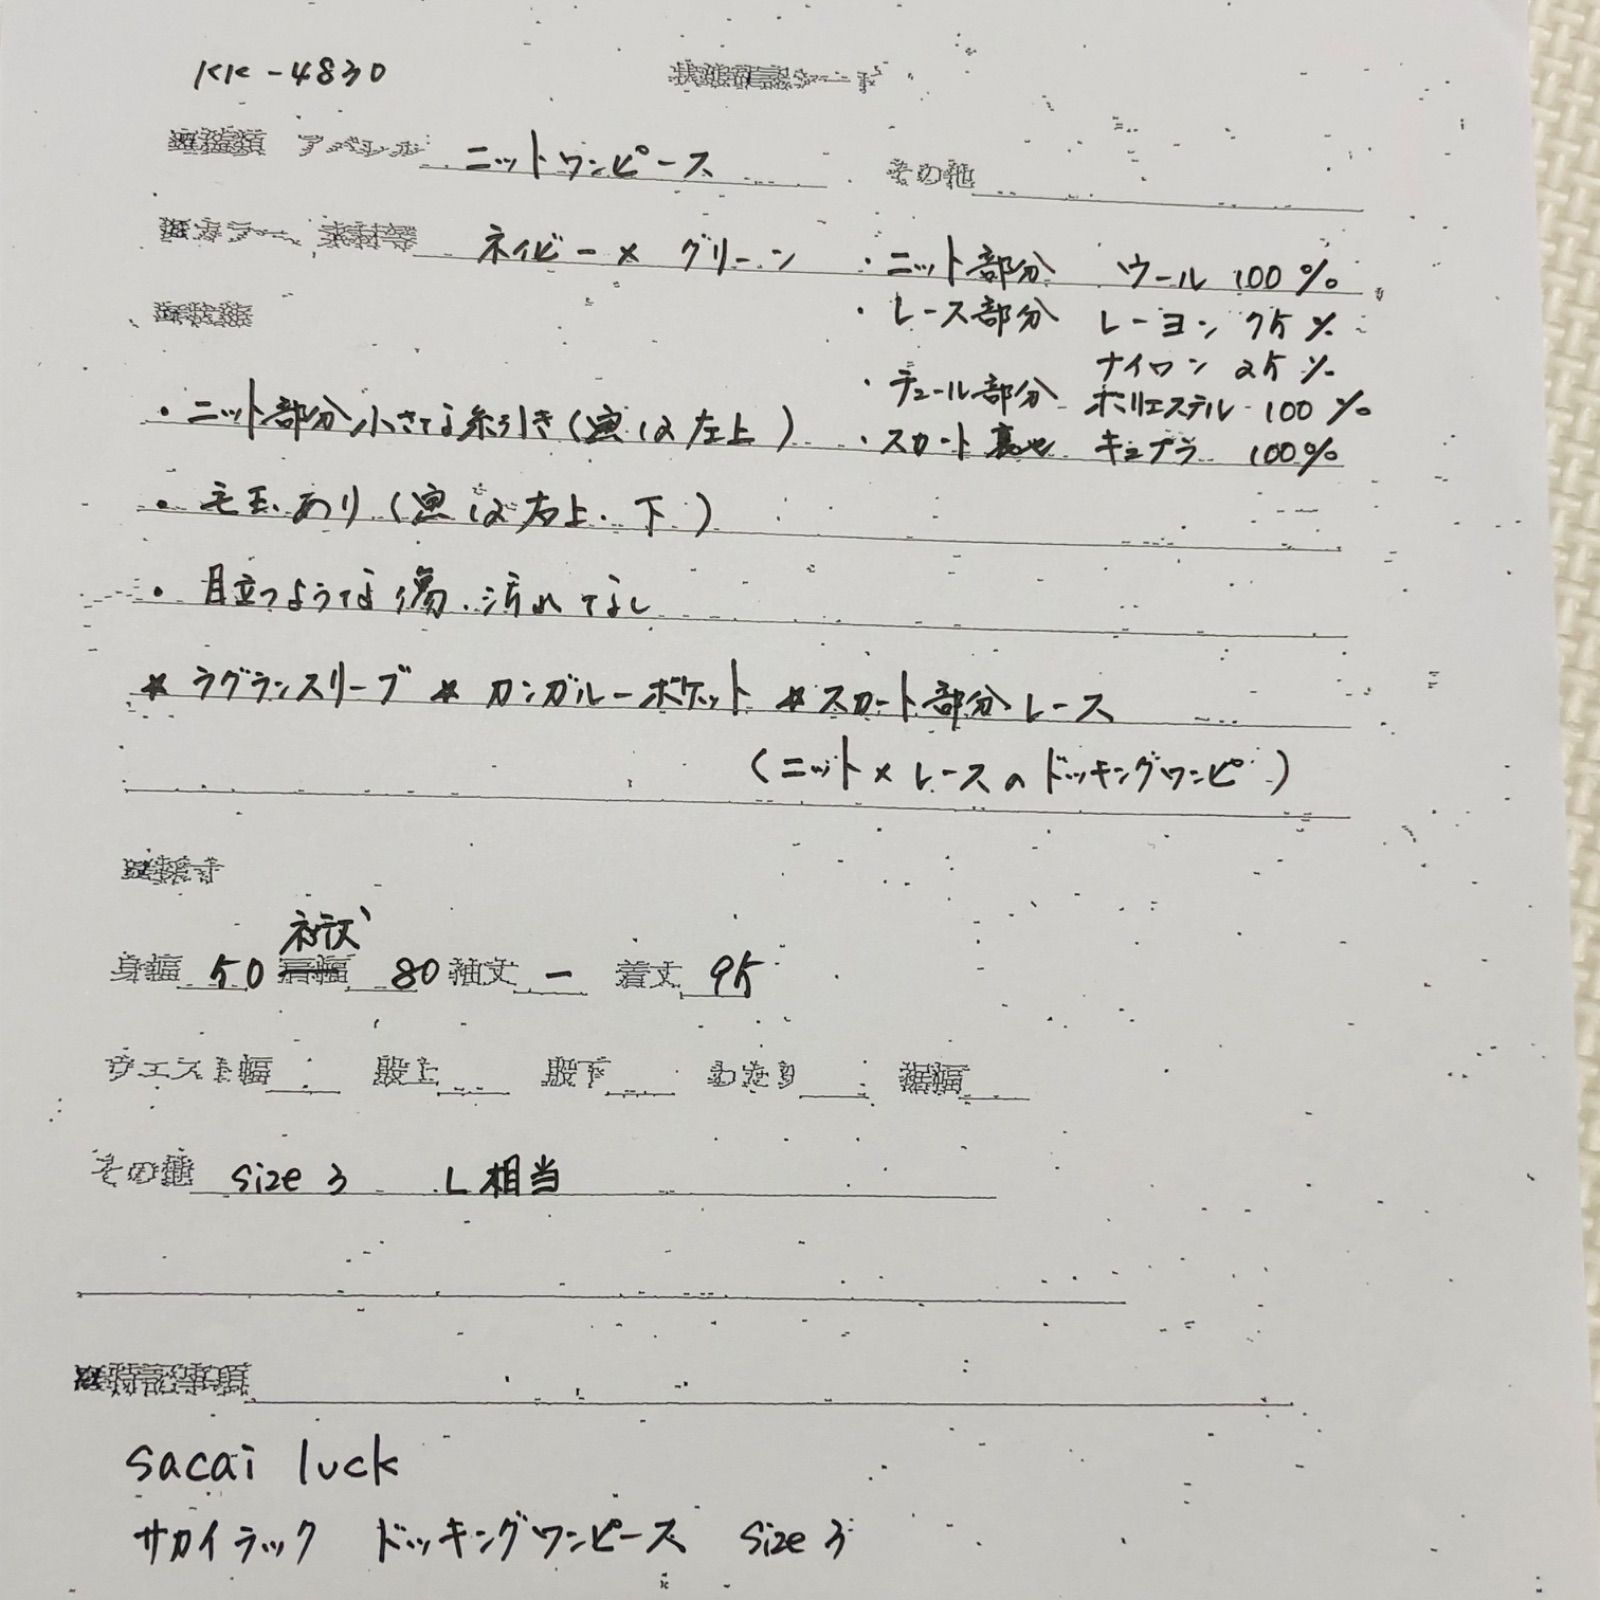 KK-4830
状態確認シート
アパレル ニットワンピース その他
カラー、素材等 ネイビー×グリーン ・ニット部分 ウール 100%
・レース部分 レーヨン 75%
ナイロン 25%
・チュール部分 ポリエステル 100%
・スカート裏地 キュプラ 100%
・ニット部分小さな糸引き(画像は左上)
・毛玉あり(画像は右上・下)
・目立つような傷、汚れなし
★ラグランスリーブ ★カンガルーポケット ★スカート部分レース
(ニット×レースのドッキングワンピ)
採寸
身幅 50 裄丈 80 袖丈 ー 着丈 95
ウエスト幅 股上 股下 わたり 裾幅
その他 size 3 L相当
特記事項
sacai luck
サカイラック ドッキングワンピース size 3